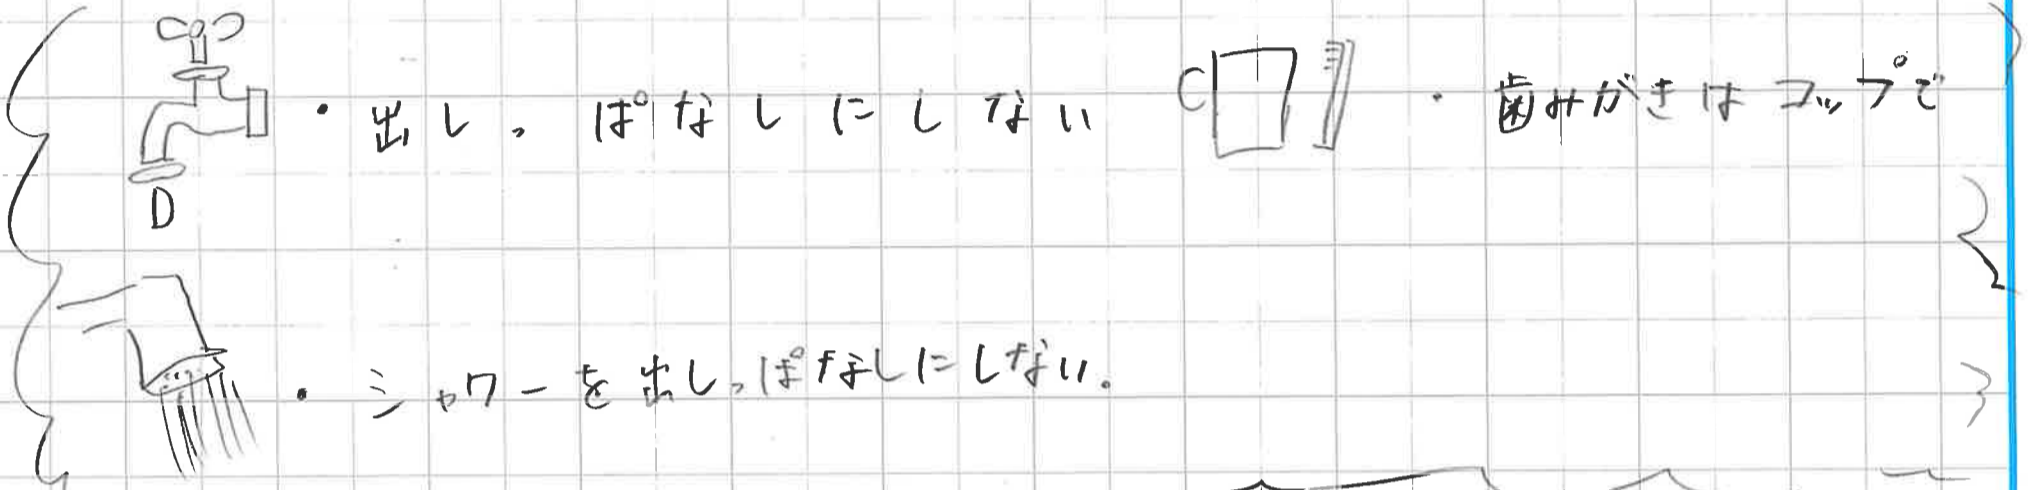 ・出しっぱなしにしない ・歯みがきはコップで
D
・シャワーを出しっぱなしにしない。